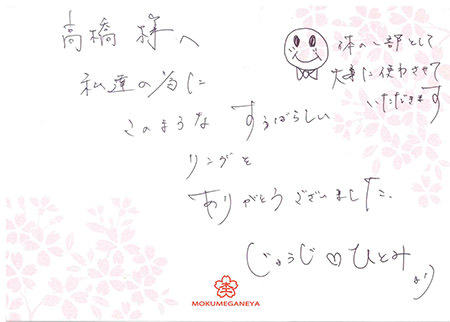 高橋 様へ
私達の為に
このような すばらしい
リングを
ありがとうございました。
じょうじ♡ひとみ
より
体の一部として
大事に使わさせて
いただきます
MOKUMEGANEYA